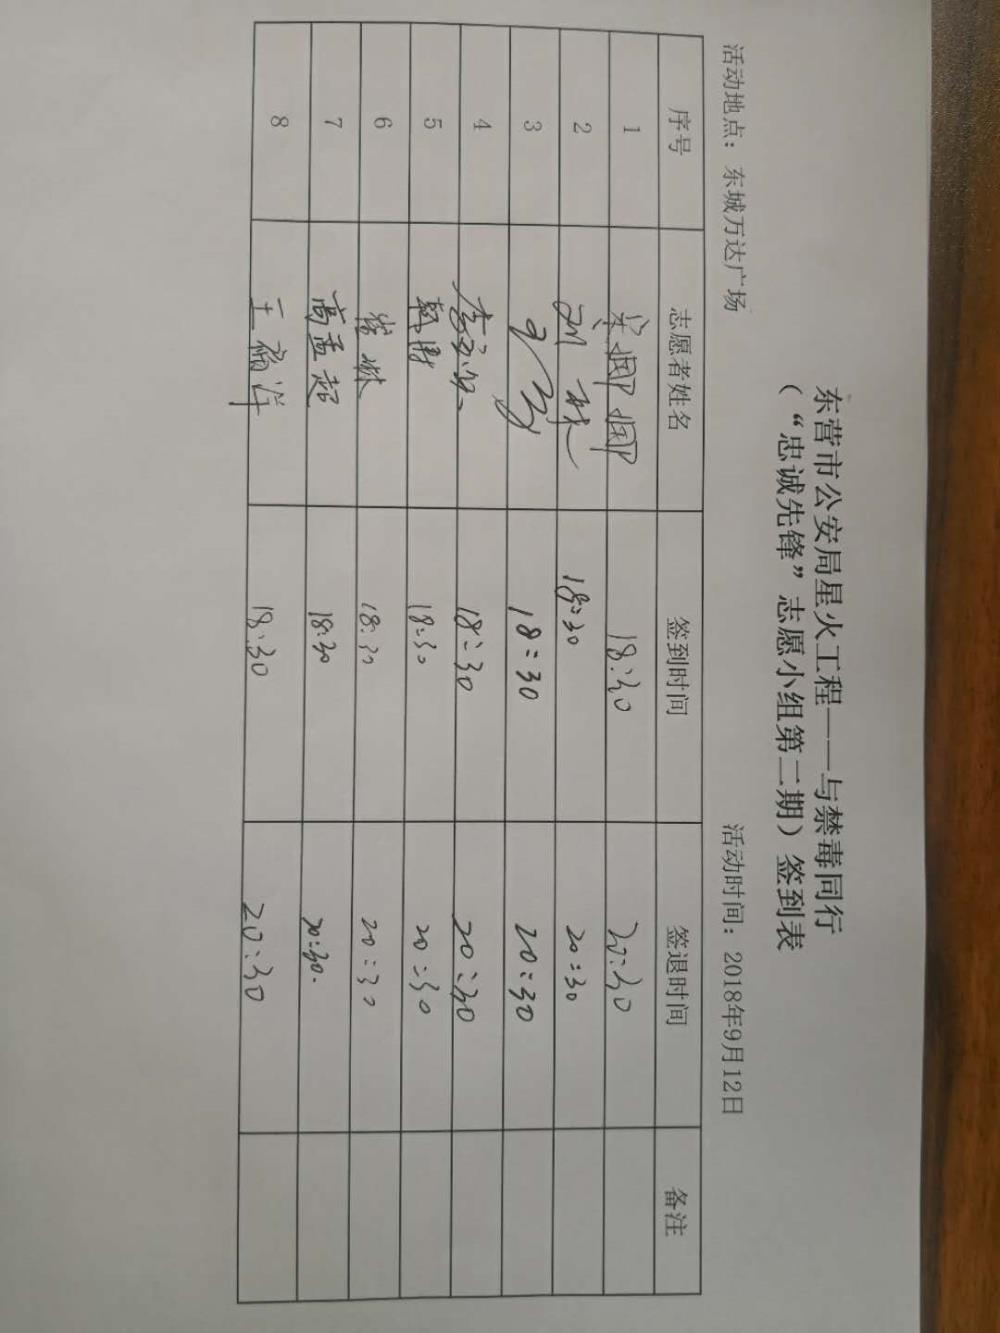 东营市公安局星火工程——与禁毒同行
（“忠诚先锋”志愿小组第二期）签到表
活动地点：东城万达广场 活动时间：2018年9月12日
序号 志愿者姓名 签到时间 签退时间 备注
1 18:30 20:30
2 18:30 20:30
3 18:30 20:30
4 18:30 20:30
5 18:30 20:30
6 18:30 20:30
7 高孟超 18:30 20:30.
8 18:30 20:30